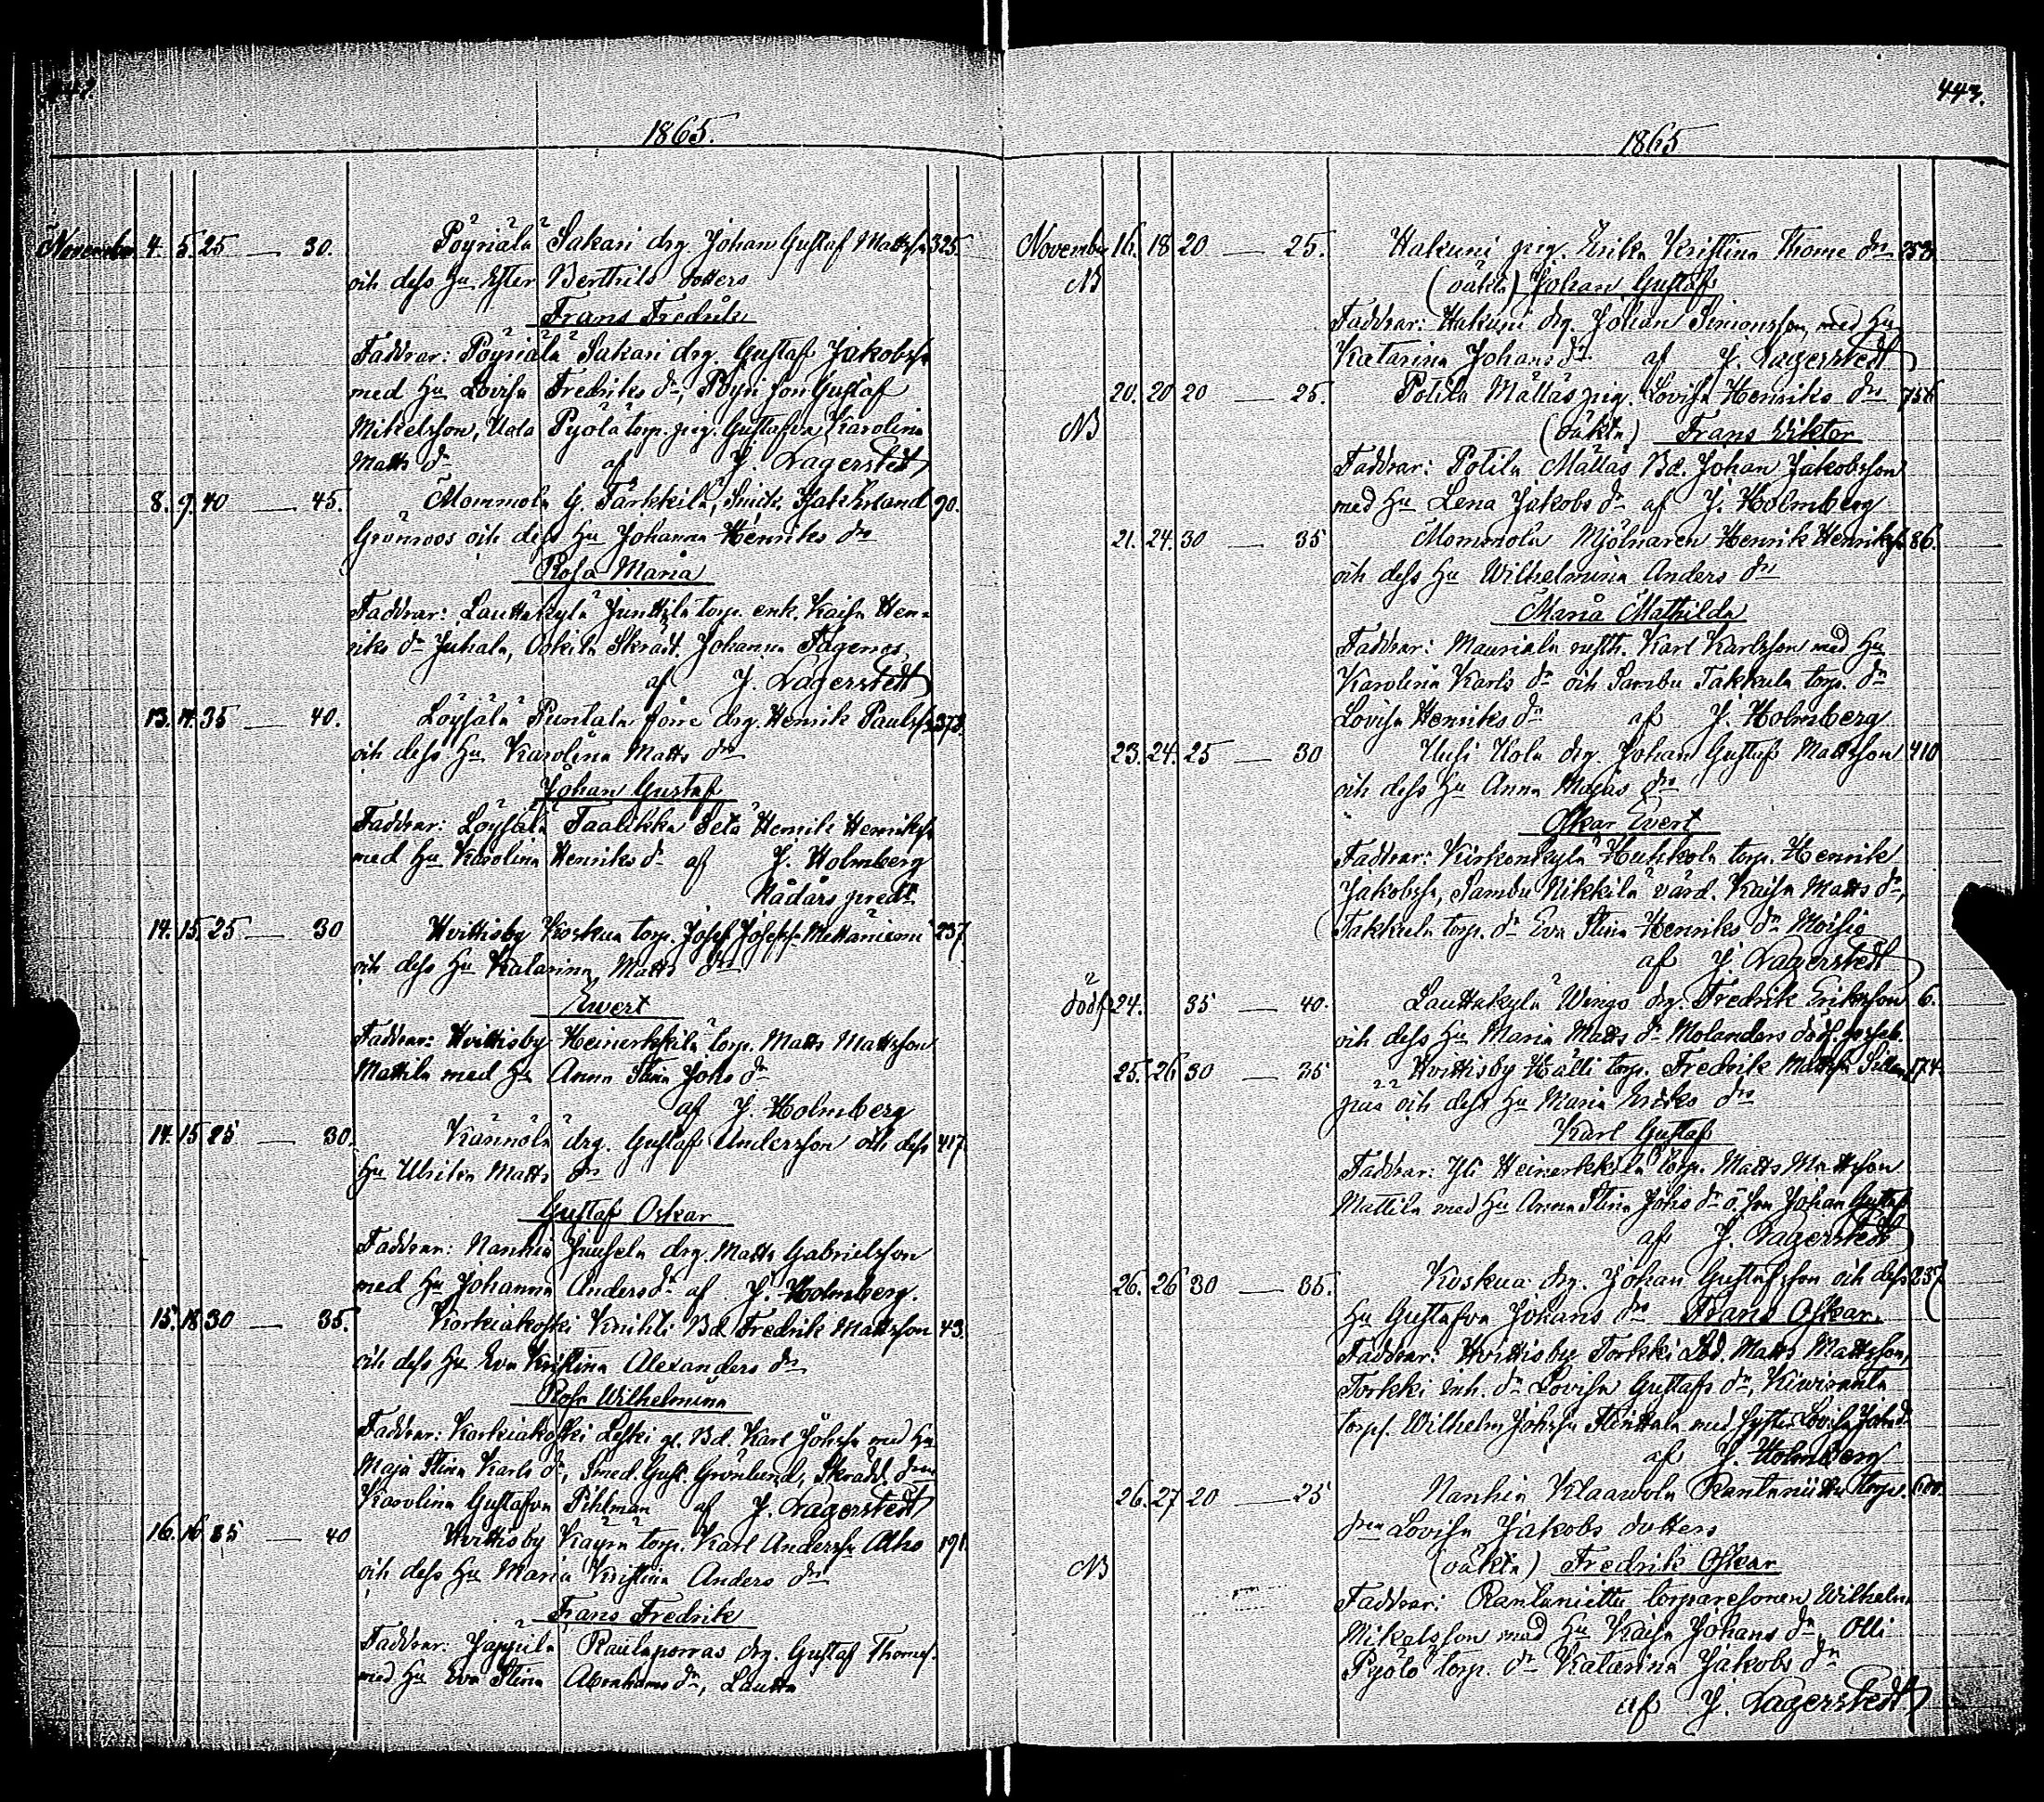 1865.
November 4. 5. 25 — 30. Pöyriälä Sakari drg. Johan Gustaf Mattss 325.
och dess Hu Ester Berthils dotters
Frans Fredrik
Faddrar: Pöyriälä Sakari drg. Gustaf Jakobss
med Hu Lovisa Fredriks dr, Pöyri son Gustaf
Mikelsson, Uola Pyölä torp. pig. Gustafva Karolina
Matts dr af J. Lagerstedt
8. 9. 40 — 45. Mommola G. Tärkkilä, Smick. Hjalmar 90.
Grönroos och dess Hu Johanna Henriks dr
Rosa Maria
Faddrar: Lauttakylä Junttila torp. enk. Kaisa Hen-
riks dr Juhala, Oskila Skrädd. Johanna Fagerros
af J. Lagerstedt
13. 14. 35 — 40. Löysälä Puntala förre drg. Henrik Paulss 373.
och dess Hu Karolina Matts dr
Johan Gustaf
Faddrar: Löysälä Taalikka Henrik Henrikss
med Hu Karolina Henriks dr af J. Holmberg
Nådårs pred.
14. 15. 25 — 30 Hvittisby Koskua torp. Josef Josefss. Mettäniemi 237
och dess Hu Katarina Matts dr
Ewert
Faddrar: Hvittisby Heinerkkilä torp. Matts Mattsson
Mattila med Hu Anna Stina Johs dr
af J. Holmberg
14. 15. 25 — 30. Kännölä drg. Gustaf Andersson och dess 417.
Hu Ulrika Matts dr
Gustaf Oskar
Faddrar: Nanhia Juusela drg. Matts Gabrielsson
med Hu Johanna Anders dr af J. Holmberg.
15. 18. 30 — 35. Korkiakoski Knihti Bd. Fredrik Mattsson 43.
och dess Hu Eva Kristina Alexanders dr
Rosa Wilhelmina
Faddrar: Korkiakoski Leski gl. Bd. Karl Johss med Hu
Maja Stina Karls dr, Smed. Gust. Grönlund, Skrädd.
Karolina Gustafva Pihlman af J. Lagerstedt
16. 16. 35 — 40 Hvittisby Käyrä torp. Karl Anderss Alho 191.
och dess Hu Maria Kristina Anders dr
Frans Fredrik
Faddrar: Jappila Raulaporras drg. Gustaf Thomes.
med Hu Eva Stina Abrahams dr, Lautta
443.
1865
November 16. 18 20 — 25. Hakuni pig. Erika Kristina Thome dr
NB (oäkta) Johan Gustaf
Faddrar: Hakuni drg. Johan Simonsson med Hu
Katarina Johans dr af J. Lagerstedt
20. 20 20 — 25. Potila Mälläs pig. Lovisa Henriks dr
NB (oäkta) Frans Wiktor
Faddrar: Potila Mälläs Bd. Johan Jakobsson
med Hu Lena Jakobs dr af J. Holmberg
21. 24. 30 — 35 Mommola Mjölnaren Henrik Henrikss 86.
och dess Hu Wilhelmina Anders dr
Maria Mathilda
Faddrar: Mauriala rusth. Karl Karlsson med Hu
Karolina Karls dr och Sambu Takkula torp. dr
Lovisa Henriks dr af J. Holmberg
23. 24. 25 — 30 Uusi Uola drg. Johan Gustaf Mattsson 410
och dess Hu Anna Majas dr
Oskar Evert
Faddrar: Kirkonkylä Huhkola torp. Henrik
Jakobss, Sambu Nikkilä värd. Kaisa Matts dr,
Takkula torp. dr Eva Stina Henriks dr Moisio
af J. Lagerstedt
dödf 24. 35 — 40. Lauttakylä Wingo drg. Fredrik Eriksson 6.
och dess Hu Maria Matts dr Molanders
25. 26 30 — 35 Hvittisby Hälli torp. Fredrik Mattss Sillan 174.
pää och dess Hu Maria Eriks dr
Karl Gustaf
Faddrar: Yli Heinerkkilä torp. Matts Mattsson
Mattila med Hu Anna Stina Johs dr o. son Johan Gustaf
af J. Lagerstedt
26. 26 30 — 35. Koskua drg. Johan Gustafsson och dess 237
Hu Gustafva Johans dr Frans Oskar.
Faddrar: Hvittisby Torkki Lbd. Matts Mattsson,
Torkki inh. dr Lovisa Gustafs dr, Kiviranta
torps. Wilhelm Johss Flinttala med syster Lovisa Johs dr
af J. Holmberg
26. 27 20 — 25 Nanhia Klaavola Rantaniittu torps. 600.
Lovisa Jakobs dotters
NB (oäkta) Fredrik Oskar
Faddrar: Rantaniittu torparesonen Wilhelm
Mikelsson med Hu Kaisa Johans dr, Olli
Pyölö torp. dr Katarina Jakobs dr
af J. Lagerstedt